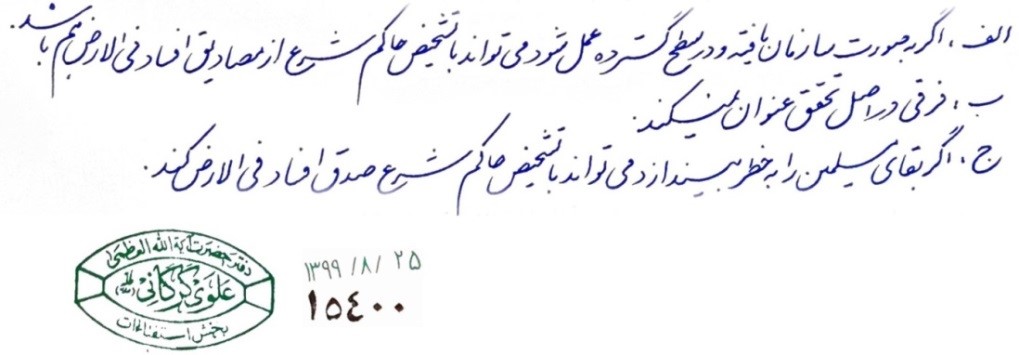 الف، اگر به صورت سازمان یافته و در سطح گسترده عمل شود می تواند با تشخیص حاکم شرع از مصادیق افساد فی الارض هم باشد.
ب، فرقی در اصل تحقق عنوان نمیکند.
ج، اگر بقای مسلمین را به خطر بیندازد می تواند با تشخیص حاکم شرع صدق افساد فی الارض کند.
دفتر حضرت آیة الله العظمی
علوی گرگانی
بخش استفتائات
۱۳۹۹/۸/۲۵
۱۵٤۰۰